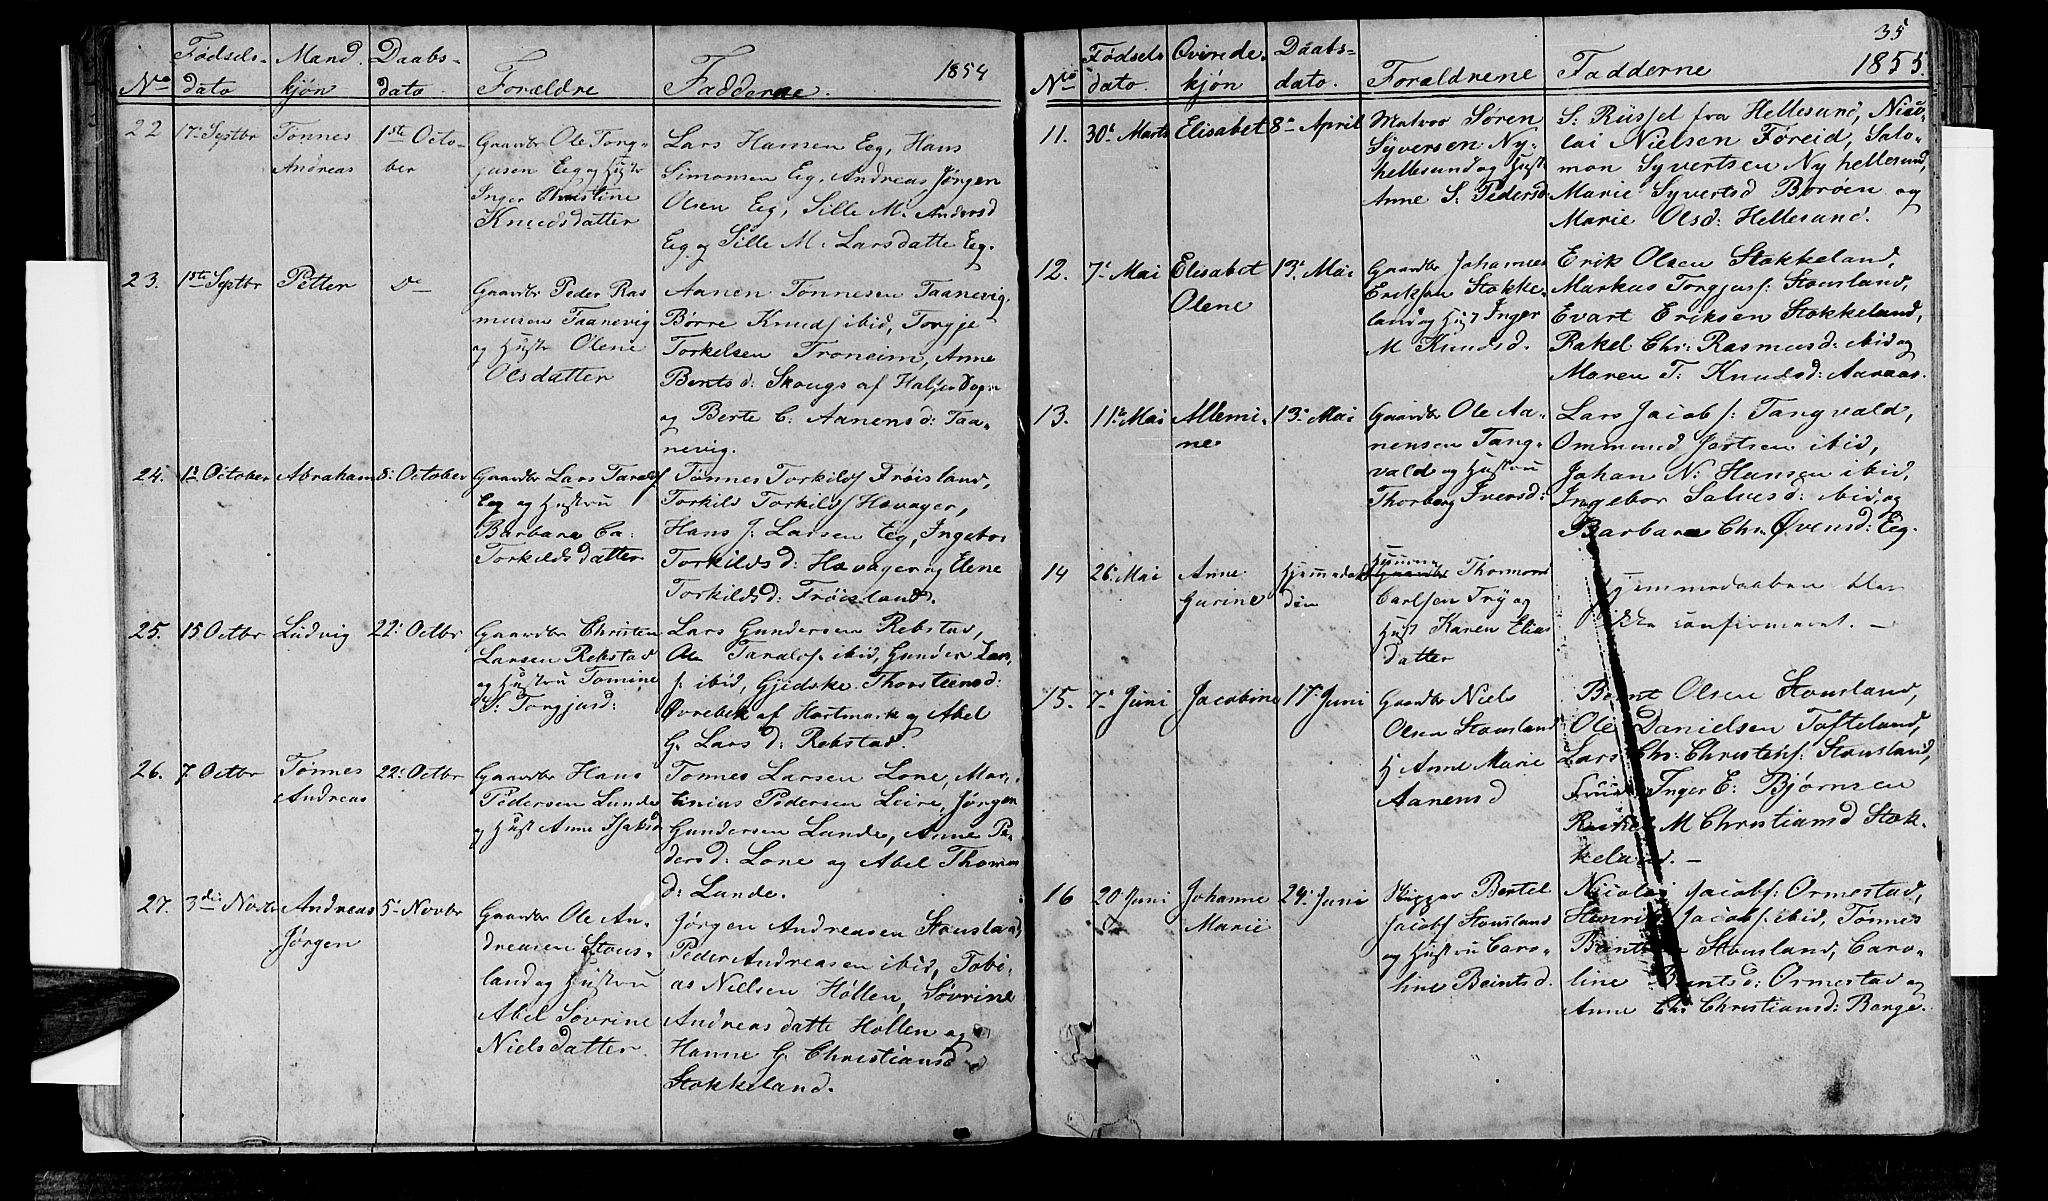 1854
No Fødsels-dato Mand kjøn Daabs-dato Forældre Fadderne
22 17de Septbr Tønnes Andreas 1ste Octo-ber
Gaardbr Ole Torg-
jusen Eeg og Hustr
Inger Christine
Knudsdatter
Lars Hansen Eeg, Hans
Simonsen Eeg, Andreas Jørgen
Olsen Eeg, Sille M. Andersd
Eeg og Sille M. Larsdatte Eeg.
23. 1ste Septbr Petter Do
Gaardbr Peder Ras
musen Taanevig
og Hustr Olene
Olsdatter
Aanen Tønnesen Taanevig,
Børre Knuds ibid, Torgje
Torkelsen Troneim, Anne
Bentsd: Skougs af Halsesogn
og Berte C: Aanensd: Taa-
nevig.
24. 1ste October Abraham 8: October
Gaardbr Lars Taralds
Eeg og Hustru
Barbara Ca:
Torkildsdatter
Tønnes Torkilds Frøisland,
Torkild Torkilds Høvager,
Hans J: Larsen Eeg, Ingebor
Torkildsd: Høvager og Elene
Torkildsd: Frøisland.
25. 15 Octbr Ludvig 22: Octbr
Gaardbr Christen
Larsen Rebstad
og Hustru Tomine
S: Torgjusd:
Lars Gundersen Rebstad,
Ole Taralds ibid, Gunder Lar,
s. ibid, Gjidske Thorsteinsd:
Øvrebek af Hartmark og Abel
G. Larsd: Rebstad.
26. 7 Octbr Tønnes Andreas 22: Octbr
Gaardbr Hans
Pedersen Lunde
og Hust Anne Isaksd
Tønnes Larsen Lone, Mar,
tinius Pedersen Leire, Jørgen
Gundersen Lunde, Anne Pe-
dersd: Lone og Abel Thomas
d: Lunde.
27. 3die Novbr Andreas Jørgen 5: Novbr
Gaardbr Ole An-
dreasen Stous-
land og Hustru
Abel Sovrine
Nielsdatter.
Jørgen Andreasen Stousland
Peder Andreasen ibid, Tobi-
as Nielsen Høllen, Søvrine
Andreasdatte Høllen og
Hanne G. Christiansd
Stokkeland.
35
1855.
No Fødsels dato. Qvinde-kjøn Daabs-dato. Forældrene Fadderne
11. 30te Marts Elisabet 8de April
Matros Søren
Syversen Ny-
hellesund og Hust
Anne S. Pedersd.
S. Russel fra Hellesund, Nico-
lai Nielsen Føreid, Salo-
mon Syvertsen Ny hellesund,
Marie Syvertsd Borøen og
Marie Olsd: Hellesund.
12. 7de Mai Elisabet Olene 13de Mai
Gaardbr Johannes
Eriksen Stokke-
land og Hust Inger
M Knudsd.
Erik Olsen Stokkeland,
Markus Torgjuss: Stousland,
Evart Eriksen Stokkeland,
Rakel Chr: Rasmusd: ibid og
Maren T: Knudsd: Aaraas.
13. 11te Mai Allemi-ne 13de Mai
Gaardbr Ole Aa-
nensen Tang-
vald og Hustru
Thorberg Iversd:
Lars Jacobs: Tangvald,
Ommund Jertsen ibid,
Johan N: Hansen ibid,
Ingebor Salvesd: ibid, og
Barbara Chr. Øvensd: Eeg.
14 26de Mai Anne Gurine Hjemmedøb
Gaardbr Thormod
Carlsen Try og
Hust Karen Elias
datter
Hjemmedaaben blev
ikke confirmeret. —
15. 7de Juni Jacobine 17de Juni
Gaardbr Niels
Olsen Stousland
H Anne Marie
Aanensd
Bernt Olsen Stousland,
Ole Danielsen Tofteland,
Lars Chr: Christens: Stousland,
Inger E: Bjørnsen
Rachel M Christiansd Stok-
keland. —
16 20 Juni Johanne Marie 24de Juni
Skipper Bertel
Jacobs Stousland
og Hustru Caro-
line Beintsd.
Nicolai Jacobs: Ormestad,
Henrik Jacobs: ibid, Tønnes
Beintsen Stousland, Caro-
line Beintsd: Ormestad og
Anne Chr: Christiansd: Berge.